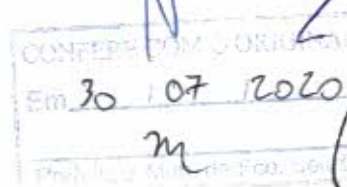 CONFERE COM O ORIGINAL
Em 30 / 07 / 2020
m